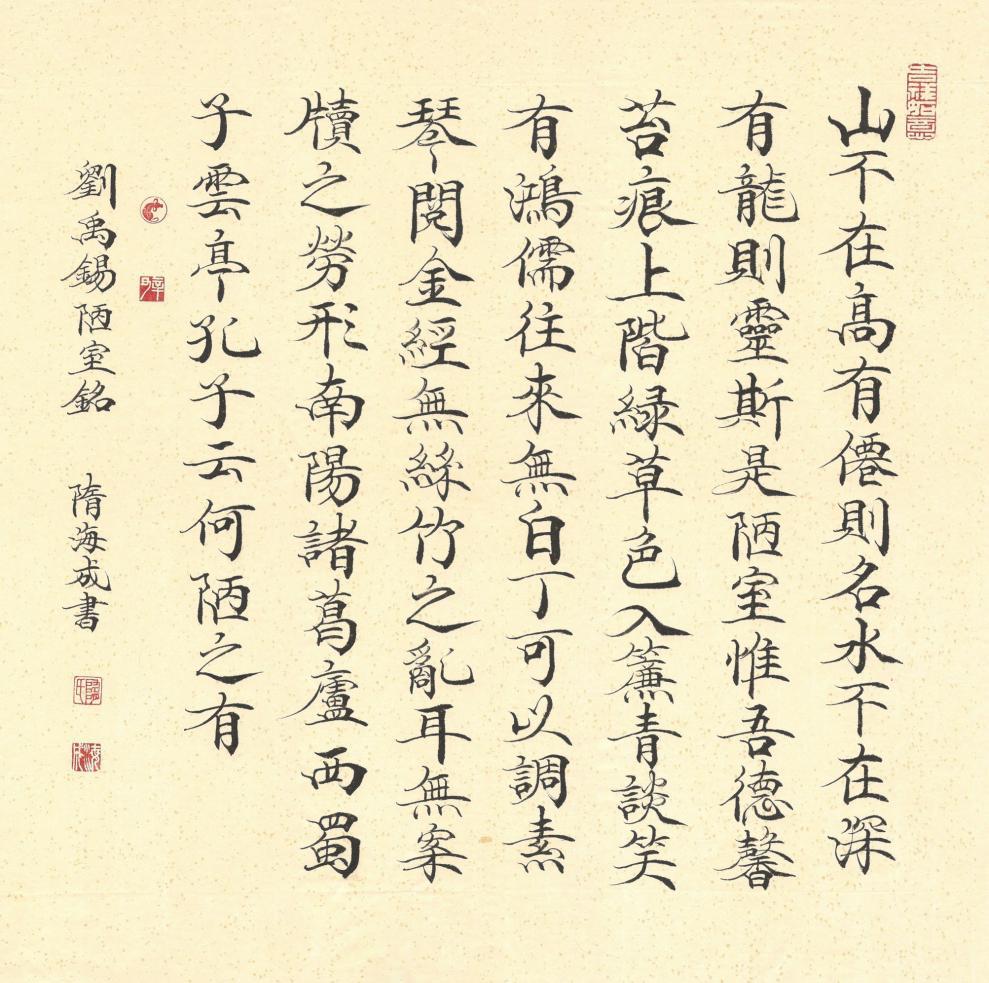 山不在髙有僊則名水不在深
有龍則靈斯是陋室惟吾徳馨
苔痕上階緑草色入簾青談笑
有鴻儒往來無白丁可以調素
琴閱金經無絲竹之亂耳無案
牘之勞形南陽諸葛廬西蜀
子雲亭孔子云何陋之有
劉禹錫陋室銘 隋海成書